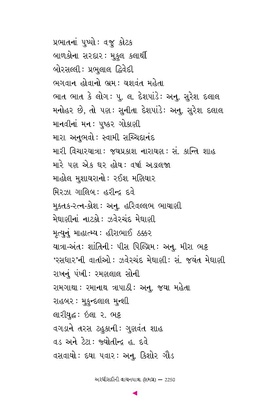 પ્રભાતનાં પુષ્પો : વજુ કોટક
બાળકોના સરદાર : મુકુલ કલાર્થી
બોરસલ્લી : પ્રભુલાલ દ્વિવેદી
ભગવાન હોવાનો ભ્રમ : યશવંત મહેતા
ભાત ભાત કે લોગ : પુ. લ. દેશપાંડે : અનુ. સુરેશ દલાલ
મનોહર છે, તો પણ : સુનીતા દેશપાંડે : અનુ. સુરેશ દલાલ
માનવીનાં મન : પુષ્કર ગોકાણી
મારા અનુભવો : સ્વામી સચ્ચિદાનંદ
મારી વિચારયાત્રા : જયપ્રકાશ નારાયણ : સં. કાન્તિ શાહ
મારે પણ એક ઘર હોય : વર્ષા અડાલજા
માહોલ મુશાયરાનો : રઈશ મણિયાર
મિરઝા ગાલિબ : હરીન્દ્ર દવે
મુક્તક-રત્ન-કોશ : અનુ. હરિવલ્લભ ભાયાણી
મેઘાણીનાં નાટકો : ઝવેરચંદ મેઘાણી
મૃત્યુનું માહાત્મ્ય : હીરાભાઈ ઠક્કર
યાત્રા-અંત: શાંતિની : પીસ પિલ્ગ્રિમ : અનુ. મીરા ભટ્ટ
‘રસધાર’ની વાર્તાઓ : ઝવેરચંદ મેઘાણી : સં. જયંત મેઘાણી
રાખનું પંખી : રમણલાલ સોની
રામગાથા : રમાનાથ ત્રપાઠી : અનુ. જયા મહેતા
રાહબર : મુકુન્દલાલ મુન્શી
લારીયુદ્ધ : ઇલા ર. ભટ્ટ
વગડાને તરસ ટહુકાની : ગુણવંત શાહ
વડ અને ટેટા : જ્યોતીન્દ્ર હ. દવે
વસવાયો : દયા પવાર : અનુ. કિશોર ગૌડ
અરધીસદીની વાચનયાત્રા (છબરડા) — 2250